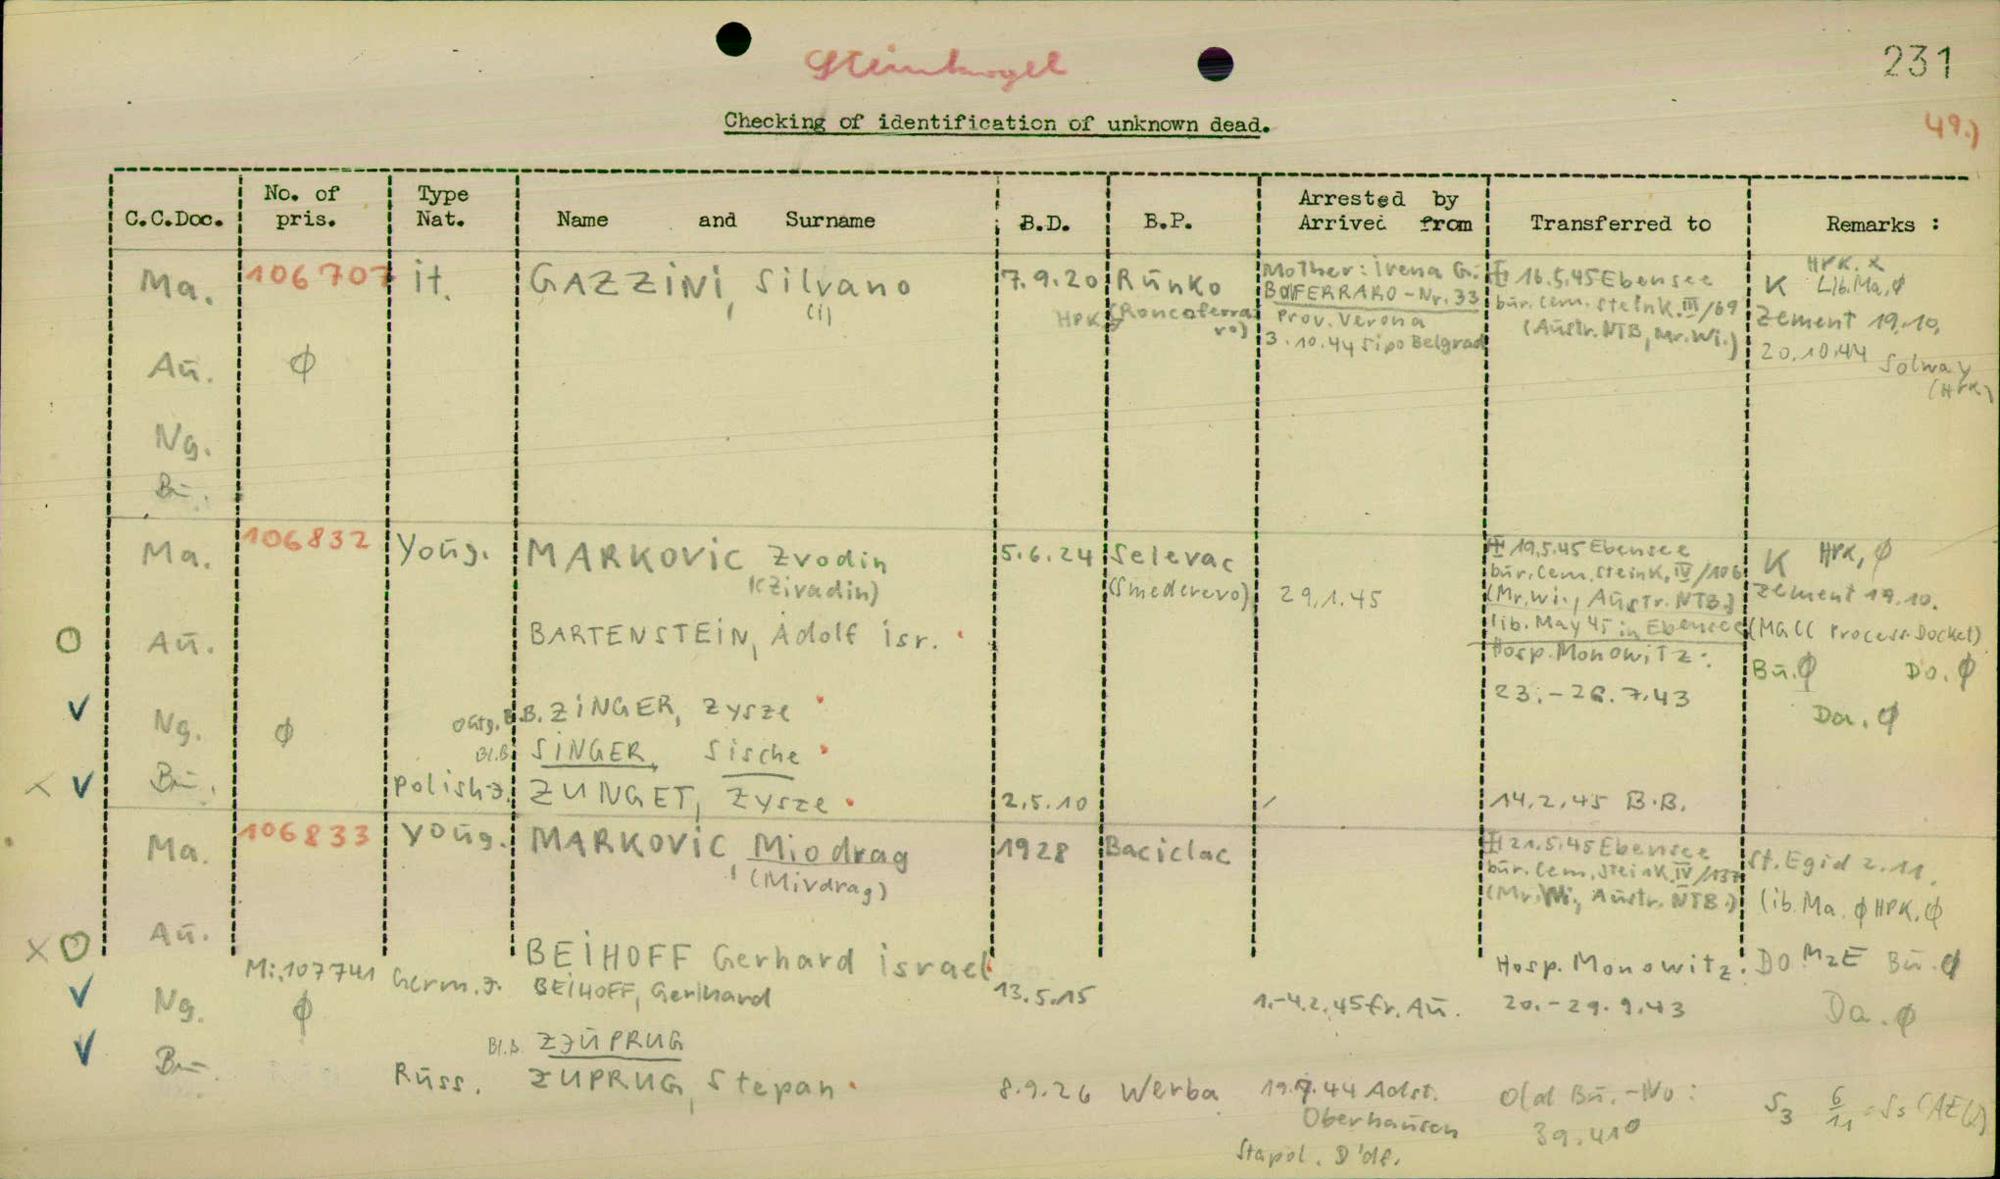 Steinkogel
231
Checking of identification of unknown dead.
49.)
C.C.Doc. No. of pris. Type Nat. Name and Surname B.D. B.P. Arrested by Arrived from Transferred to Remarks :
Ma. 106707 it. GAZZINI, Silvano 7.9.20 Runko Mother: Irena G. 16.5.45 Ebensee K HPK. x
(i) HPK (Roncoferraro) BONFERRARO - Nr. 33 bur. cem. steink. III/69 Lib. Ma, ø
Prov. Verona (Austr. NTB, Mr. Wi.) Zement 19.10.
3.10.44 Sipo Belgrad 20.10.44 Solway
(HPK)
Au. ø
Ng.
Bu.
Ma. 106832 Youg. MARKOVIC Zvodin 5.6.24 Selevac 19.5.45 Ebensee K HPK, ø
(Zivadin) (Smederevo) 29.1.45 bur. Cem. steink. IV/106 Zement 19.10.
(Mr. Wi., Austr. NTB.)
Au. BARTENSTEIN, Adolf isr. lib. May 45 in Ebensee (Ma CC Process. Docket)
Hosp. Monowitz: Bu. ø Do. ø
23.-26.7.43 Da. ø
Ng. ø B.B. ZINGER, Zysze
Bl.B. SINGER, Sische
Bu. Polish J. ZUNGET, Zysze 2.5.10 / 14.2.45 B.B.
Ma. 106833 Youg. MARKOVIC, Miodrag 1928 Baciclac 21.5.45 Ebensee St. Egid 2.11.
(Mivdrag) bur. Cem. Steink. IV/137 (lib. Ma. ø HPK. ø
(Mr. Wi., Austr. NTB.)
Au. BEIHOFF Gerhard israel Hosp. Monowitz: DO MzE Bu. ø
Mi. 107741 Germ. J. BEIHOFF, Gerhard 13.5.15 1.-4.2.45 fr. Au. 20.-29.9.43 Da. ø
Ng. ø
Bl.B. ZJUPRUG
Bu. Russ. ZUPRUG, Stepan 8.9.26 Werba 19.7.44 Adst. Old Bu.-No: S3 6/11
Oberhausen 39.410
Stapol. D'df.